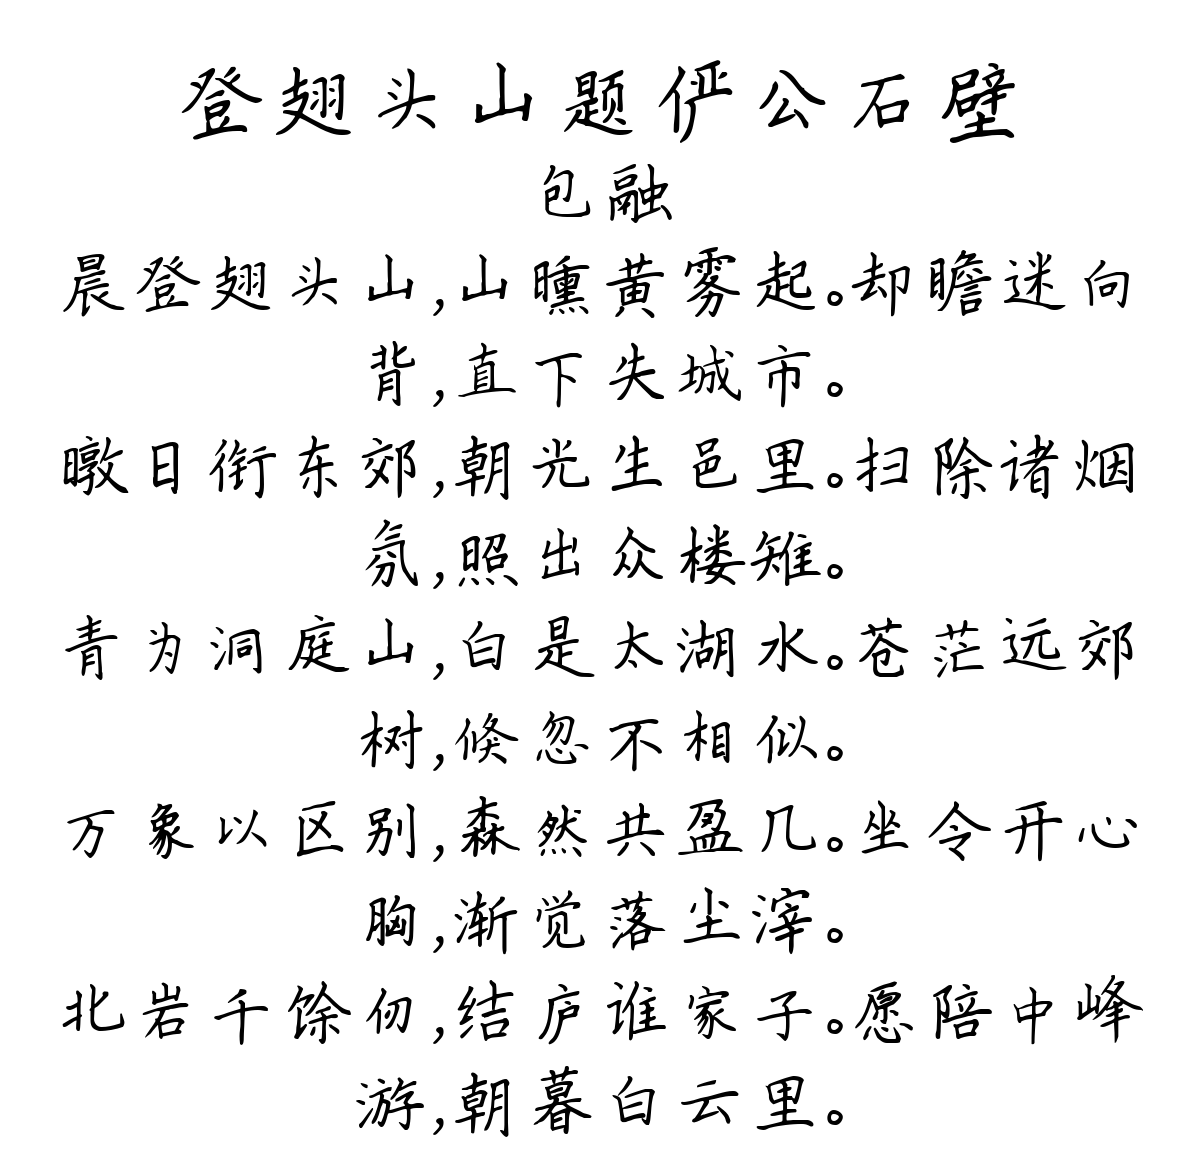 登翅头山题俨公石壁
包融
晨登翅头山,山曛黄雾起。却瞻迷向
背,直下失城市。
暾日衔东郊,朝光生邑里。扫除诸烟
氛,照出众楼雉。
青为洞庭山,白是太湖水。苍茫远郊
树,倏忽不相似。
万象以区别,森然共盈几。坐令开心
胸,渐觉落尘滓。
北岩千馀仞,结庐谁家子。愿陪中峰
游,朝暮白云里。